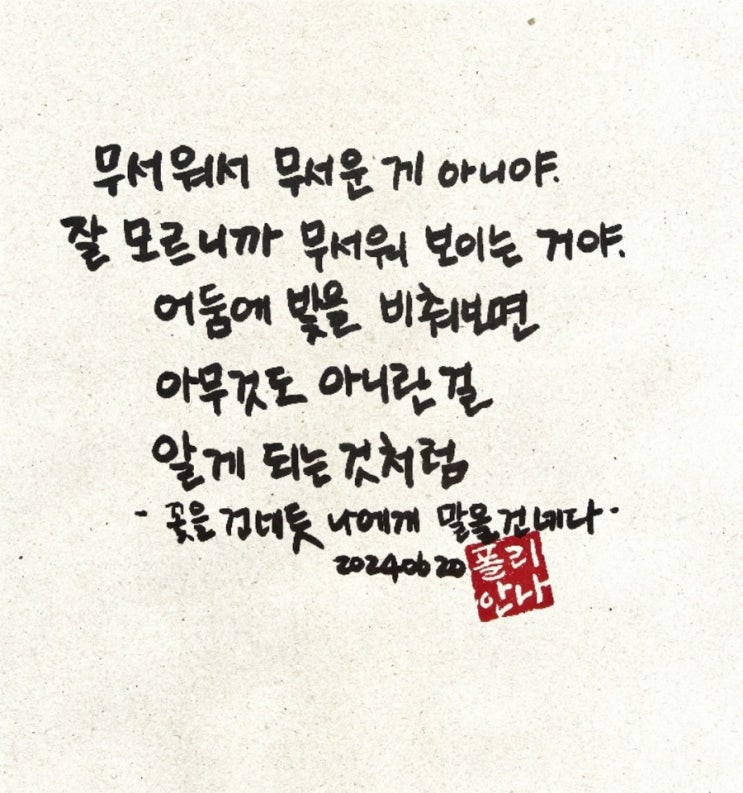 무서워서 무서운 게 아니야.
잘 모르니까 무서워 보이는 거야.
어둠에 빛을 비춰보면
아무것도 아니란 걸
알게 되는 것처럼
- 꽃을 건네듯 나에게 말을 건네다 -
2024.06 20
폴리
안나